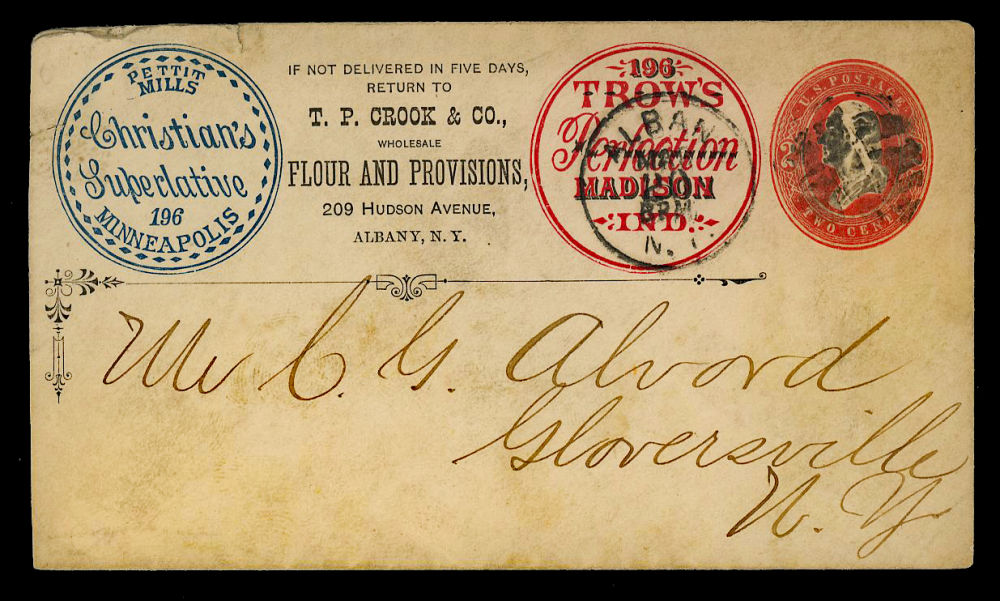 PETTIT
MILLS
Christian's
Superlative
196
MINNEAPOLIS
IF NOT DELIVERED IN FIVE DAYS,
RETURN TO
T. P. CROOK & CO.,
WHOLESALE
FLOUR AND PROVISIONS,
209 HUDSON AVENUE,
ALBANY, N. Y.
196
TROW'S
Perfection
MADISON
IND.
ALBANY
8PM
N.Y.
U.S. POSTAGE
TWO CENTS
2
Mr C. G. Alvord
Gloversville
N. Y.